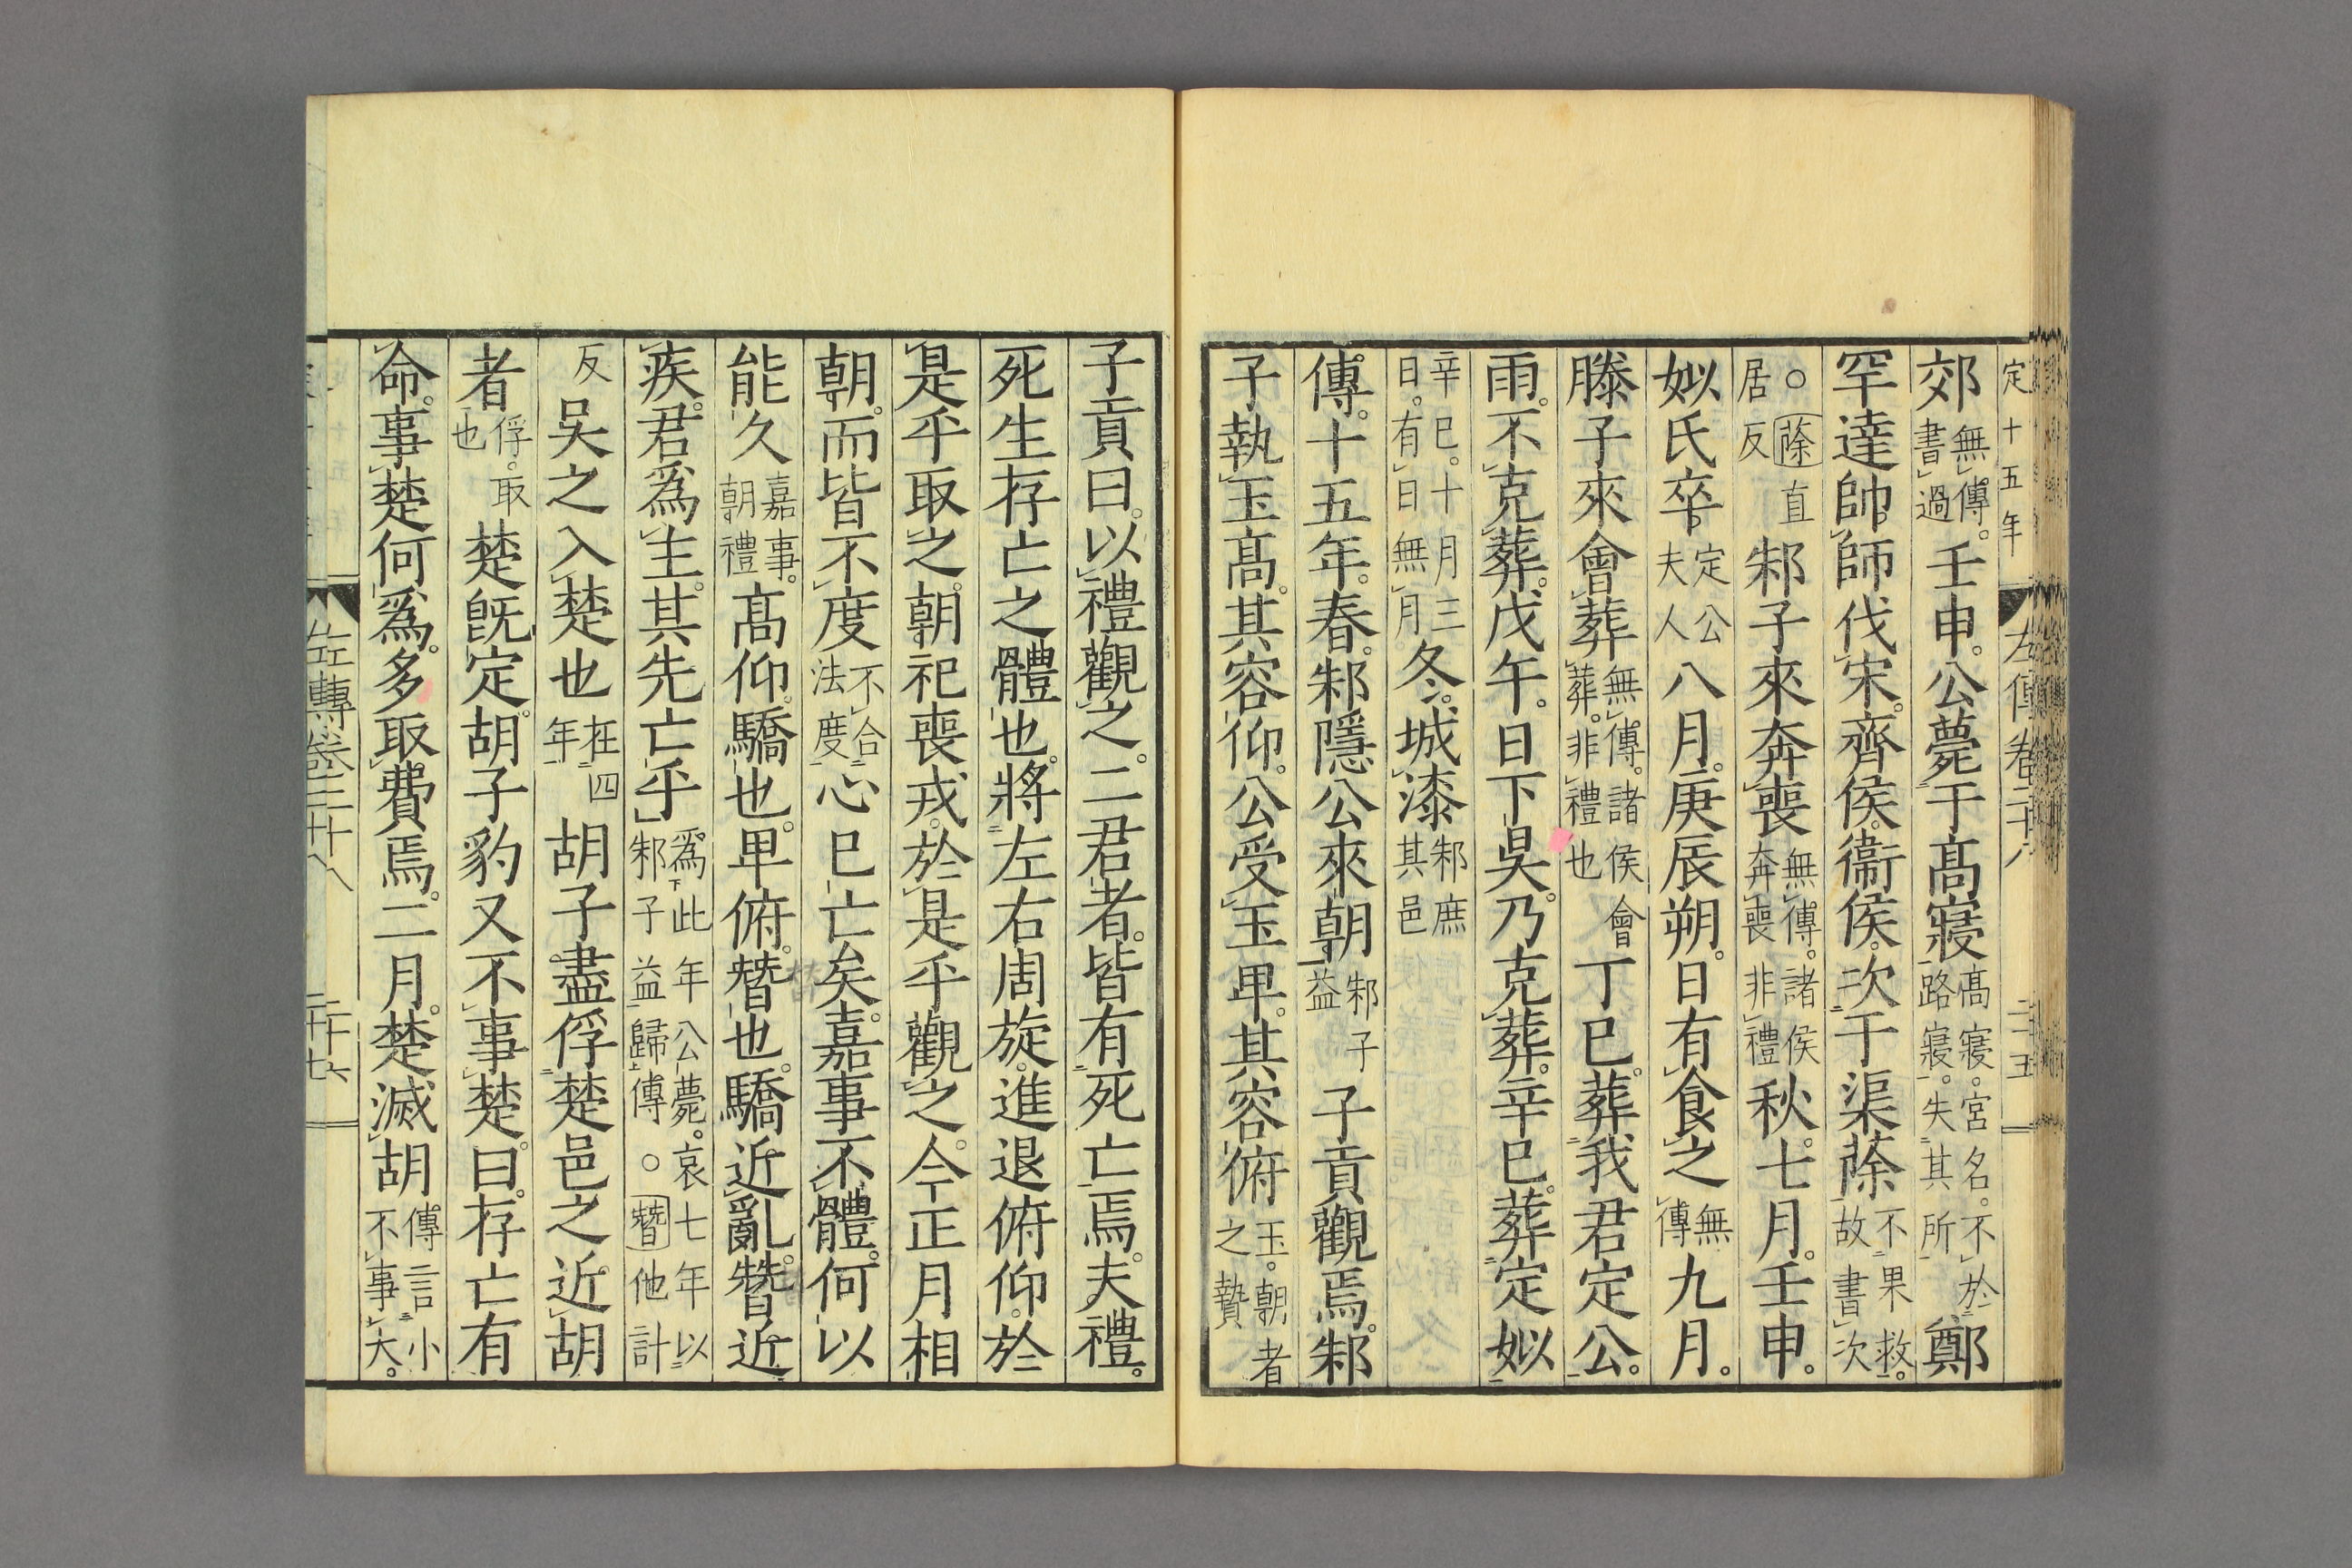 定十五年
左傳卷二十八
郊無傳。書過壬申。公薨于髙寝髙寝。宮名。不於路寝。失其所鄭
罕達帥師伐宋。齊侯。衞侯。次于渠蒢不果救。故書次
○蒢直居反邾子來奔喪無傳。諸侯奔喪非禮秋。七月。壬申。
姒氏卒定公夫人八月。庚辰朔。日有食之無傳九月。
滕子來會葬無傳。諸侯會葬。非禮也丁巳。葬我君定公。
雨。不克葬。戊午。日下昃。乃克葬。辛巳。葬定姒
辛巳。十月三日。有日無月冬。城漆邾庶其邑
傳。十五年。春。邾隱公來朝邾子益子貢觀焉。邾
子執玉髙。其容仰。公受玉卑。其容俯玉。朝者之贄
子貢曰。以禮觀之。二君者。皆有死亡焉。夫禮。
死生存亡之體也。將左右周旋。進退俯仰。於
是乎取之。朝祀喪戎。於是乎觀之。今正月相
朝。而皆不度不合法度心已亡矣。嘉事不體。何以
能久嘉事。朝禮髙仰。驕也。卑俯。替也。驕近亂。替近
疾。君爲主。其先亡乎爲此年公薨。哀七年以邾子益歸傳○替他計
反吳之入楚也在四年胡子盡俘楚邑之近胡
者俘。取也楚旣定。胡子豹又不事楚。曰。存亡有
命。事楚何爲。多取費焉。二月。楚滅胡傳言小不事大。
左傳卷二十八
二十六
二十七